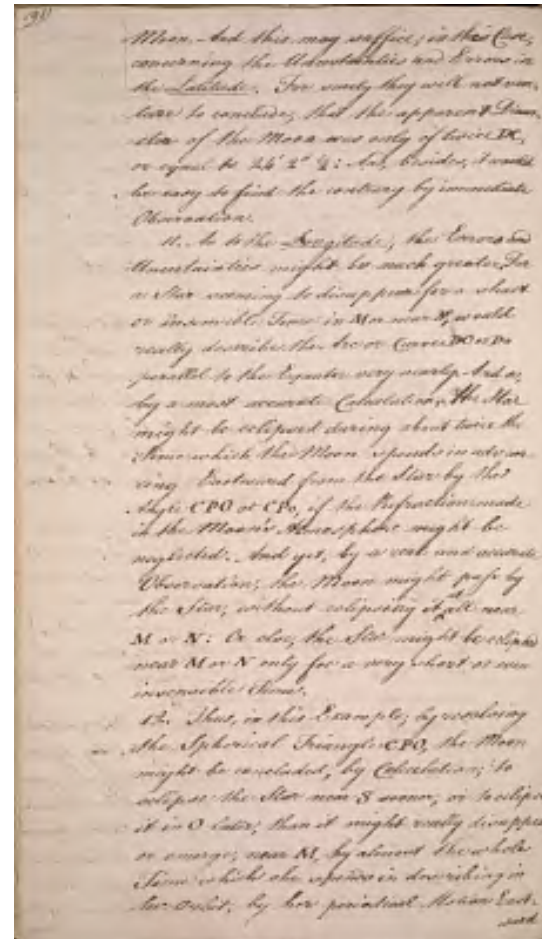 Moon. And this may suffice, in this Case,
concerning the Uncertainties and Errors in
the Latitude. For surely they will not ven-
ture to conclude, that the apparent Diam-
eter of the Moon was only of twice DC,
or equal to 24' 2" ¼: And, besides, it would
be easy to find the contrary by immediate
Observation.
11. As to the Longitude, the Errors and
Uncertainties might be much greater. For
a Star seeming to disappear for a short
or insensible Time in M or near N, would
really describe the Arc or Curve DC or Do
parallel to the Equator very nearly. And so,
by a most accurate Calculation, the Star
might be eclipsed during about twice the
Time which the Moon spends in
Eastward from the Star by the
Angle CPO or CPo, if the Refraction made
in the Moon's Atmosphere might be
neglected. And yet, by a and accurate
Observation, the Moon might pass by
the Star, without eclipsing it at all near
M or N: Or else, the Star might be eclipsed
near M or N only for a very short or even
insensible Time.
12. Thus, in this Example, by resolving
the Spherical Triangle CPO, the Moon
might be concluded, by Calculation, to
eclipse the Star near S sooner, or to eclipse
it in O later, than it might really disappear
or emerge, near M, by almost the whole
Time which she spends in describing in
her Orbit, by her periodical Motion East-
ward